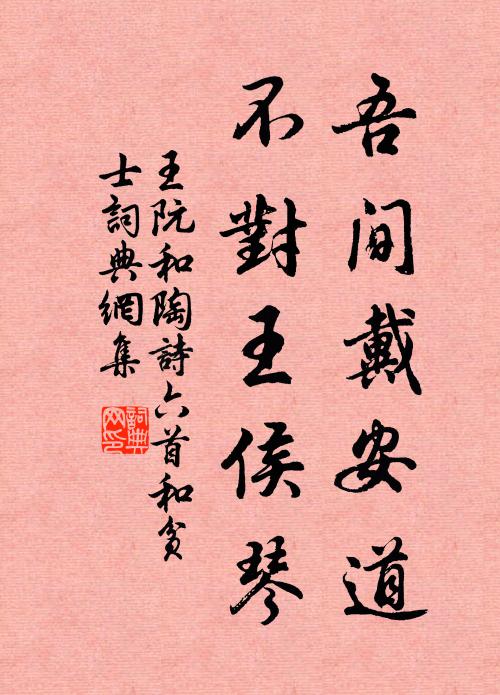 吾間戴安道
不對王侯琴
王阮和陶詩六首和貧
士詞典網集
詞典
网印